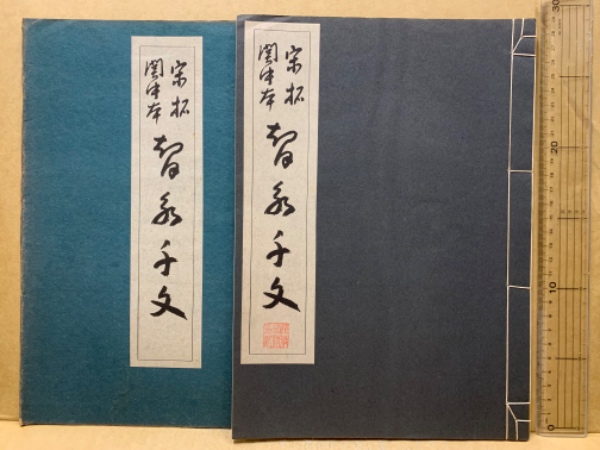 宋拓
関中本
智永千文
宋拓
関中本
智永千文
30
20
10
0